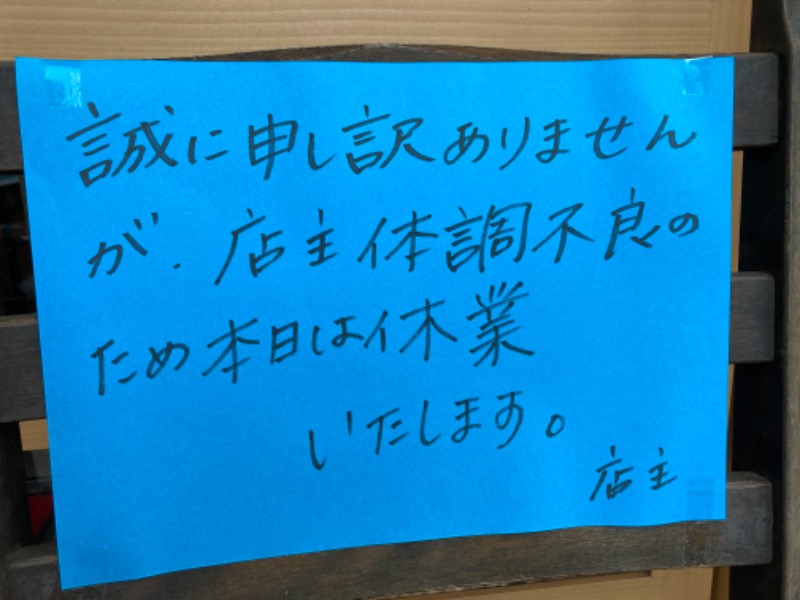 誠に申し訳ありません
が、店主体調不良の
ため本日は休業
いたします。
店主